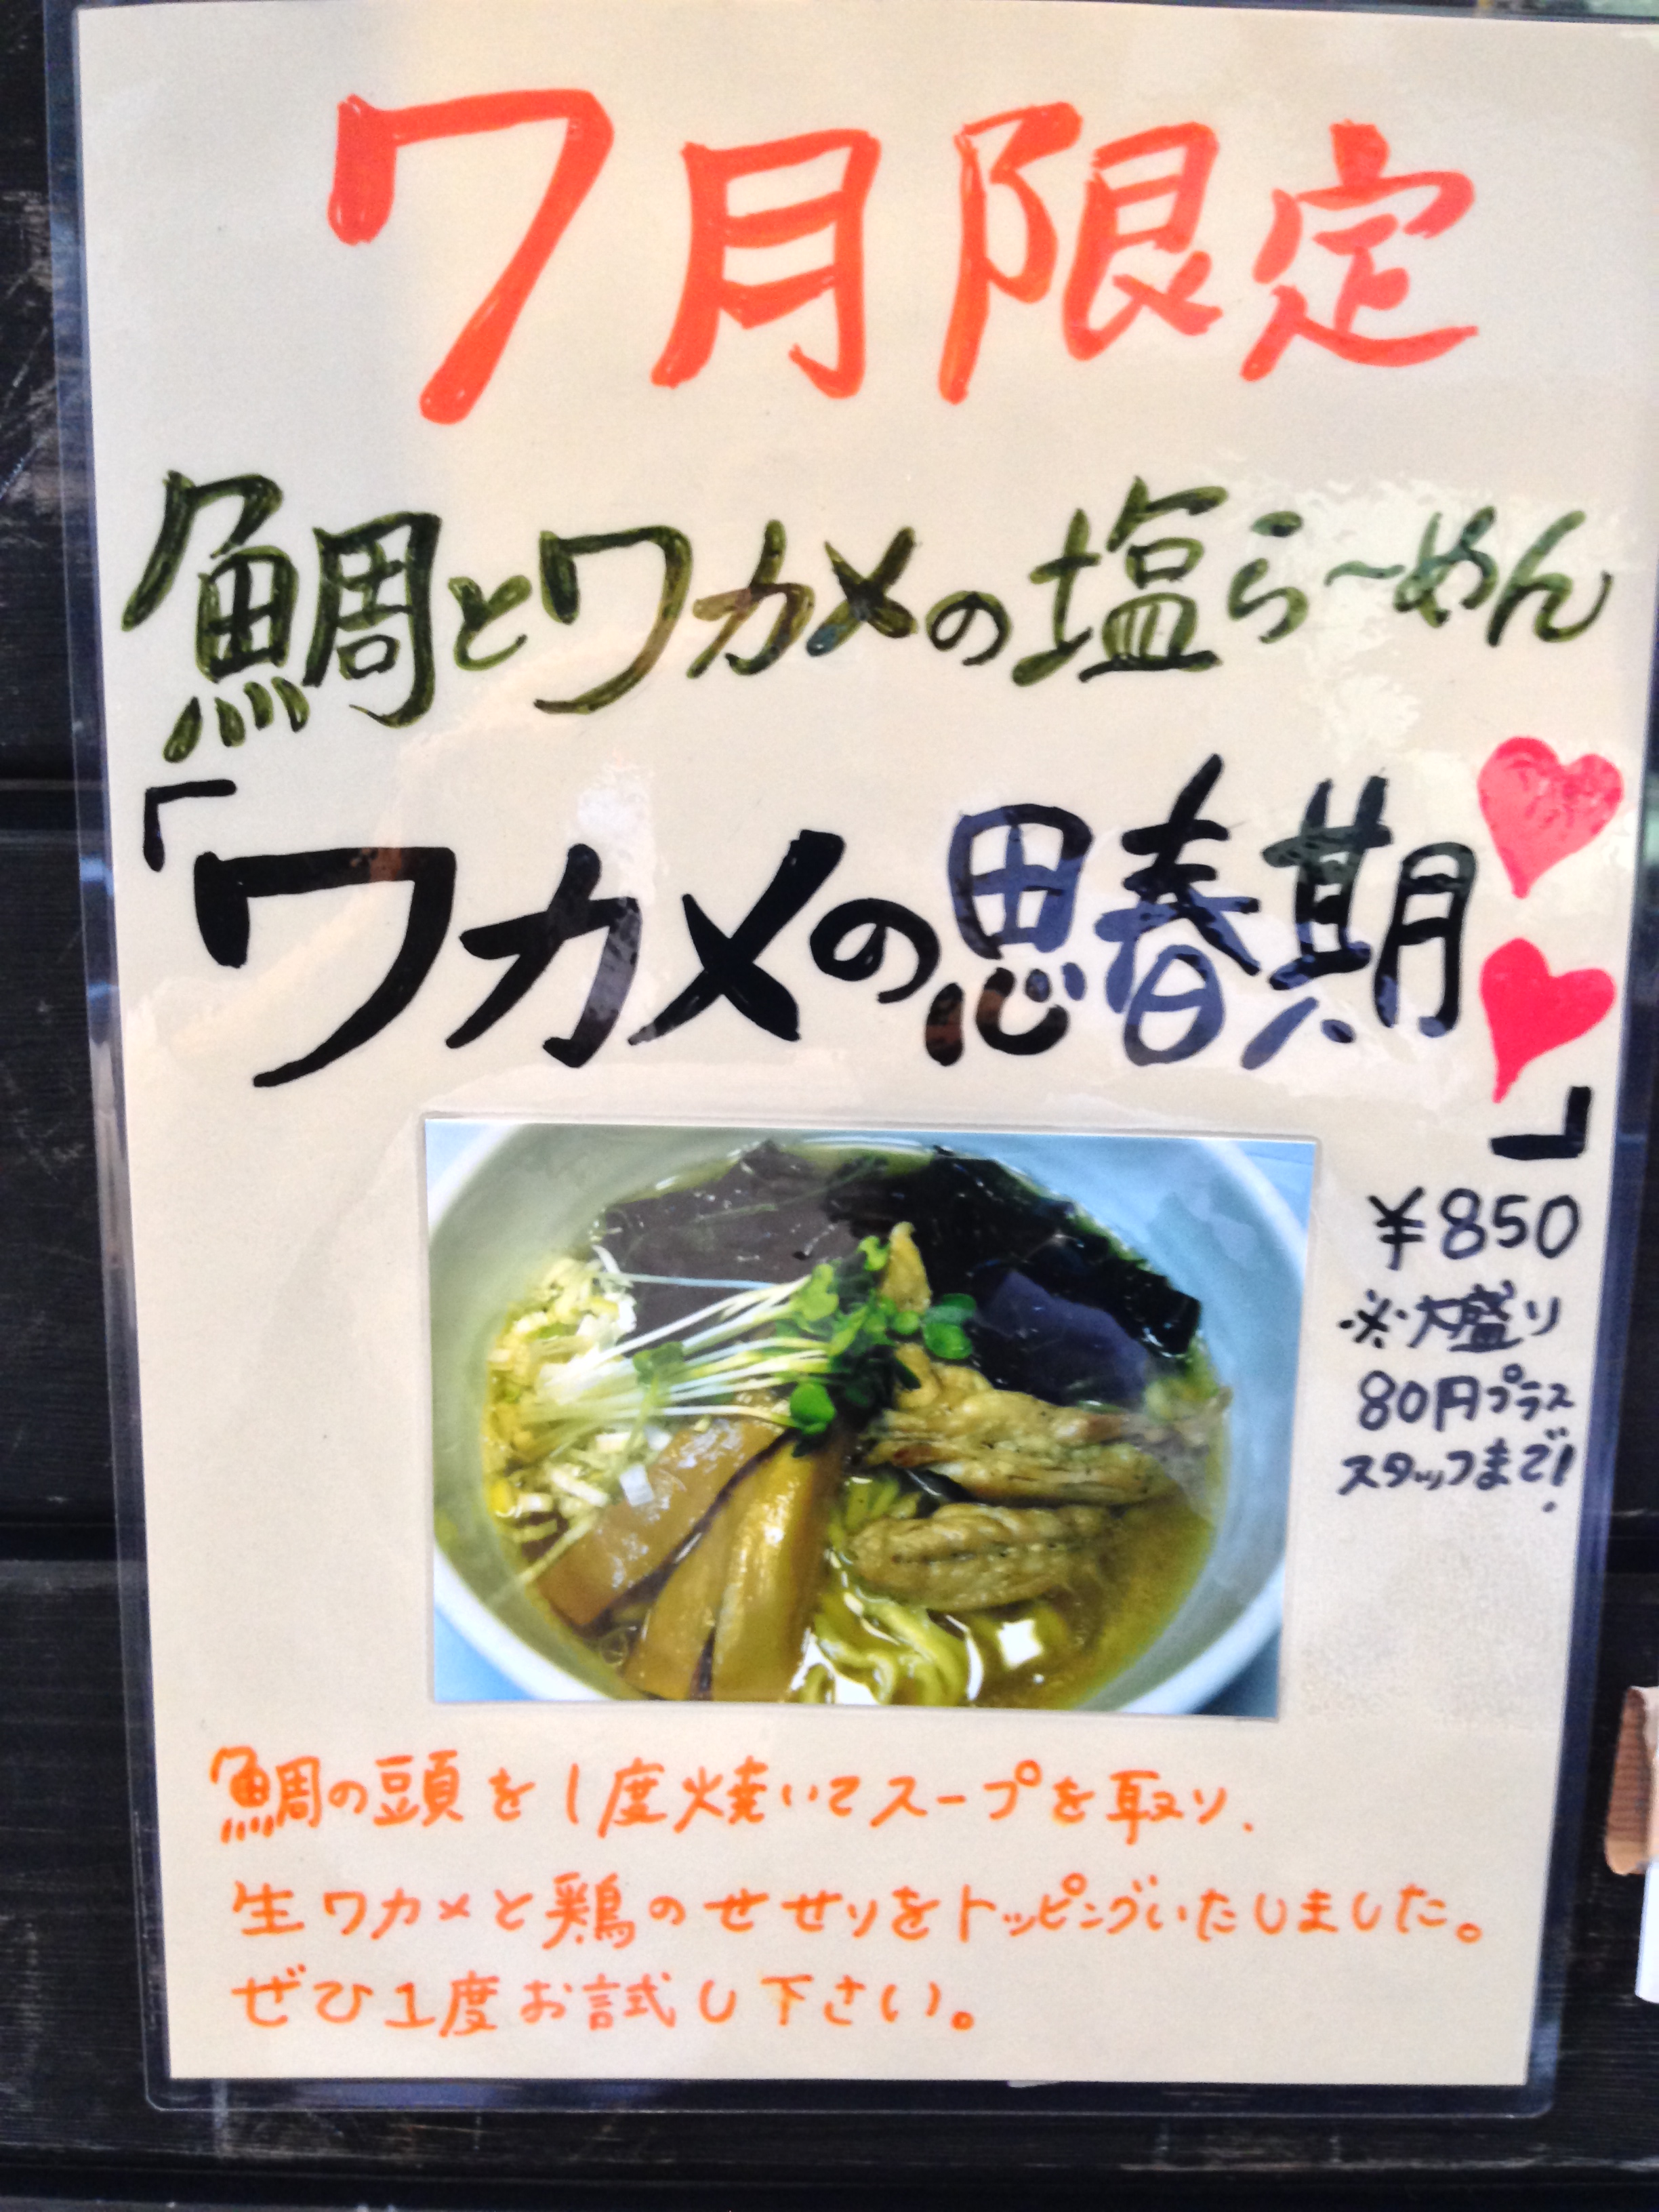 7月限定
鯛とワカメの塩ら〜めん
「ワカメの思春期♥♥」
¥850
※大盛り
80円プラス
スタッフまで!
鯛の頭を1度焼いてスープを取り、
生ワカメと鶏のせせりをトッピングいたしました。
ぜひ1度お試し下さい。